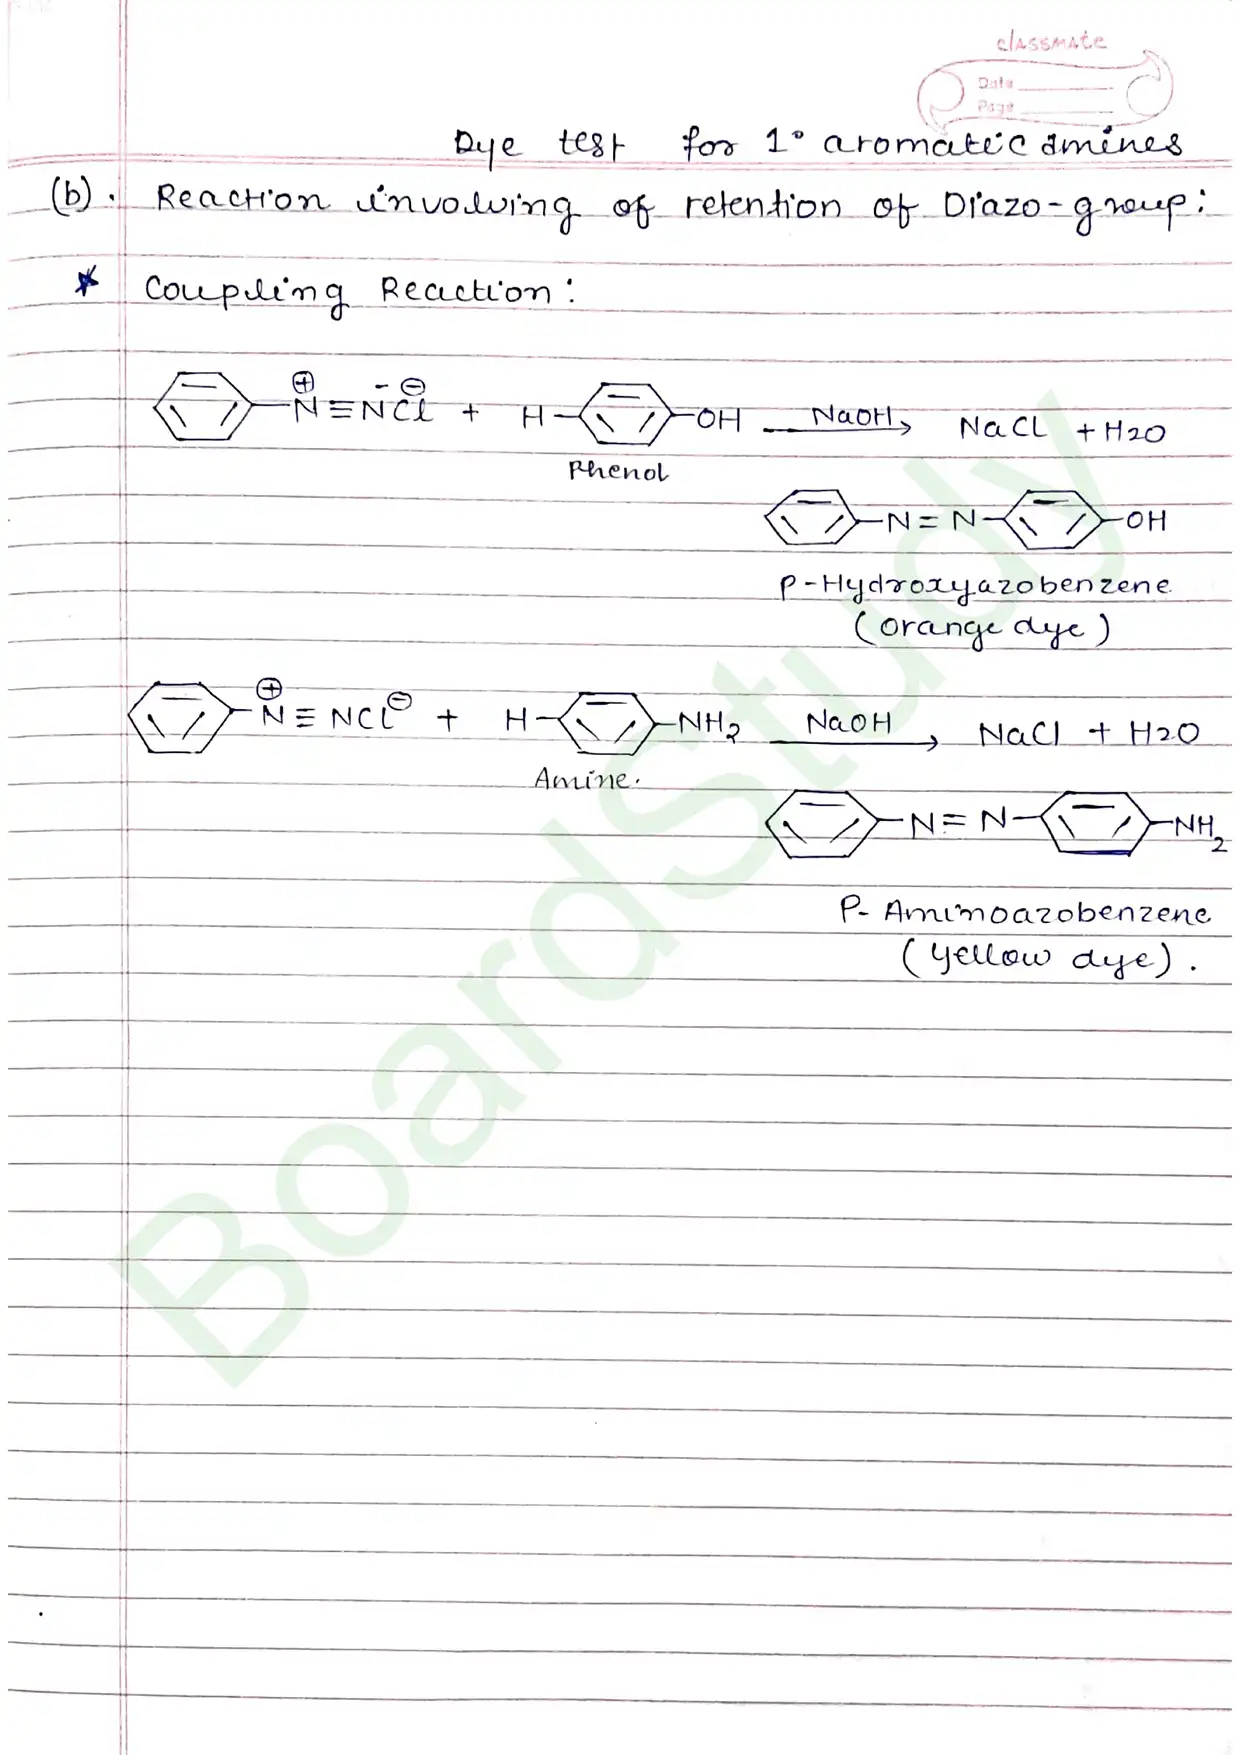 classmate
Date
Page
Dye test for 1° aromatic amines
(b). Reaction involving of retention of Diazo-group:
* Coupling Reaction:
⊕ - ⊖
N≡NCl + H- -OH NaOH→ NaCl + H2O
Phenol
-N=N- -OH
p-Hydroxyazobenzene
(orange dye)
⊕ ⊖
N≡NCl + H- -NH2 NaOH→ NaCl + H2O
Amine.
-N=N- -NH2
P- Aminoazobenzene
(yellow dye).
BoardStudy